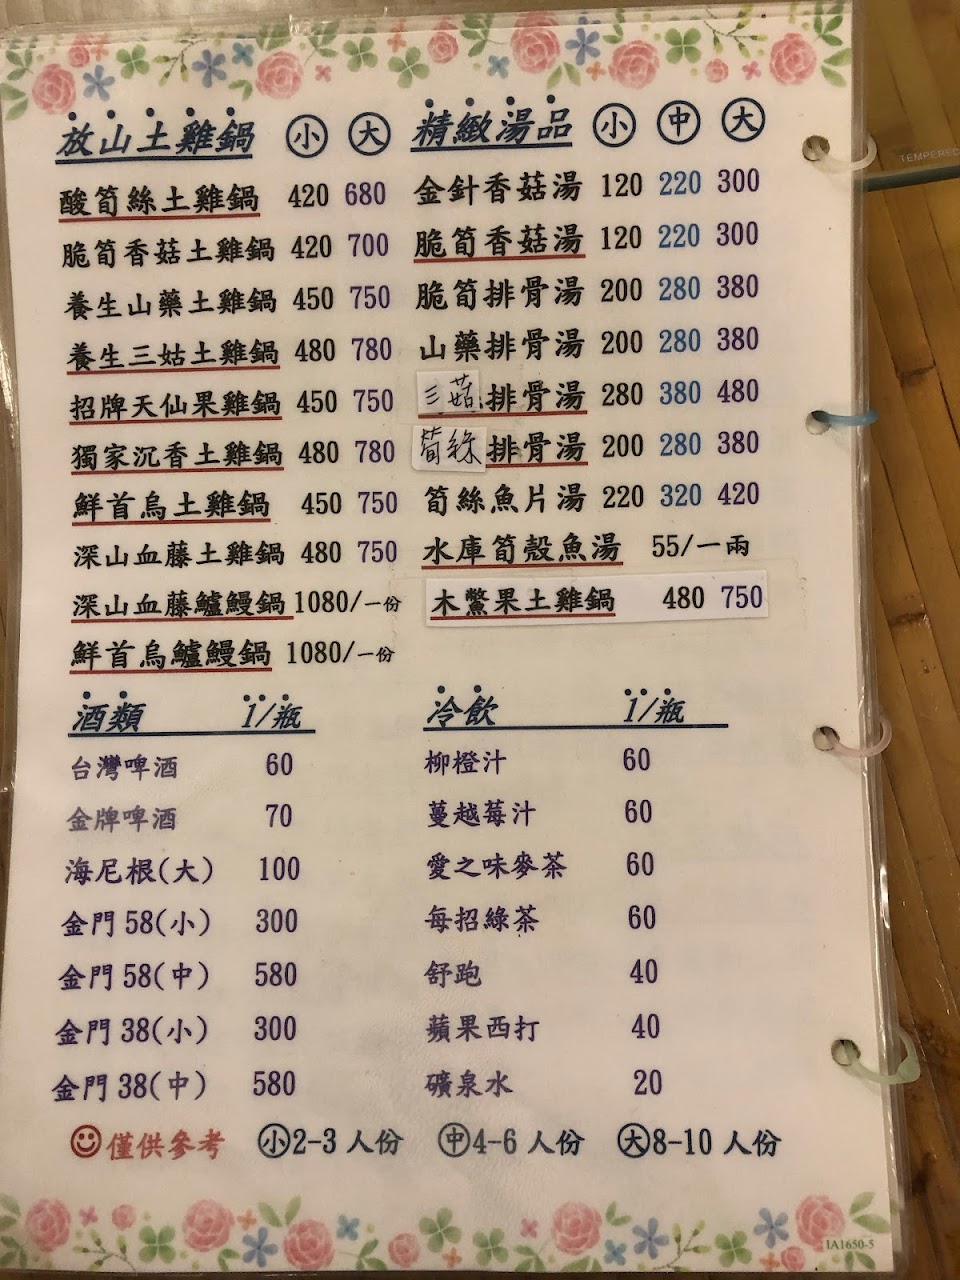 放山土雞鍋 小 大
酸筍絲土雞鍋 420 680
脆筍香菇土雞鍋 420 700
養生山藥土雞鍋 450 750
養生三姑土雞鍋 480 780
招牌天仙果雞鍋 450 750
獨家沉香土雞鍋 480 780
鮮首烏土雞鍋 450 750
深山血藤土雞鍋 480 750
深山血藤鱸鰻鍋 1080/一份
鮮首烏鱸鰻鍋 1080/一份
精緻湯品 小 中 大
金針香菇湯 120 220 300
脆筍香菇湯 120 220 300
脆筍排骨湯 200 280 380
山藥排骨湯 200 280 380
三菇排骨湯 280 380 480
筍絲排骨湯 200 280 380
筍絲魚片湯 220 320 420
水庫筍殼魚湯 55/一兩
木鱉果土雞鍋 480 750
酒類 1/瓶
台灣啤酒 60
金牌啤酒 70
海尼根(大) 100
金門58(小) 300
金門58(中) 580
金門38(小) 300
金門38(中) 580
冷飲 1/瓶
柳橙汁 60
蔓越莓汁 60
愛之味麥茶 60
每招綠茶 60
舒跑 40
蘋果西打 40
礦泉水 20
僅供參考 小2-3人份 中4-6人份 大8-10人份
IA1650-5
TEMPERED